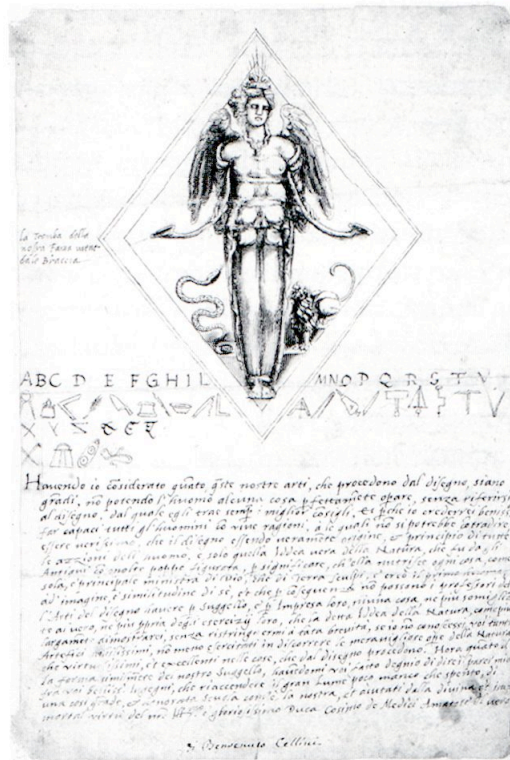 la Tromba della
nostra Fama
dale Braccia
ABC D E F G H I L M N O P Q R S T V
X Y Z
Havendo io cōsiderato quāto q̄ste nostre arti, che procedono dal disegno, siano
grādi, nō potendo l'huomo alcuna cosa pfettamēte opare, senza riferirsi
al disegno, dal quale egli trae sēpre i miglior cōsigli. Et pche io crederrei
far capaci tutti gl'huomini cō vive ragioni, à le quali nō si potrebbe cōtradire
essere che il disegno essendo veramēte origine, et principio di tutte
le azzioni dell'uomo, e solo quella Iddea vera della Natura, che fu dagli
Antichi cō molte poppe figurata, p significare, ch'ella nutrisce ogni cosa, come
sola, e principale ministra di Dio, che di Terra sculpì, e creò il primo
ad imagine, e similitudine di sè, et che p cōsequenza nō
l'Arti del disegno havere p Suggello, et p Impresa loro, niuna cosa, ne più simigliante
al vero, ne più ppria degli esercizÿ loro, che la detta Iddea della Natura, come
dimostrarvi, senza ristringermi à tāta brevità, se io nō
Artefici no meno esercitati in discorrere le meravigliose ope della Natura
che virtuosissimi, et eccellenti nelle cose, che dal disegno procedono. Hora quāto
la forma del nostro Suggello, havēdomi voi fatto degno di dire il parer mio
frà voi bellissi Ingegni, che riaccendere il gran lume poco manco che spento, di
una così grāde, et honorata Scuola com'è la nostra, et aiutati dalla divina et
mortal virtù del illmo e gloriosissimo Duca Cosimo de Medici
Di Benvenuto Cellini